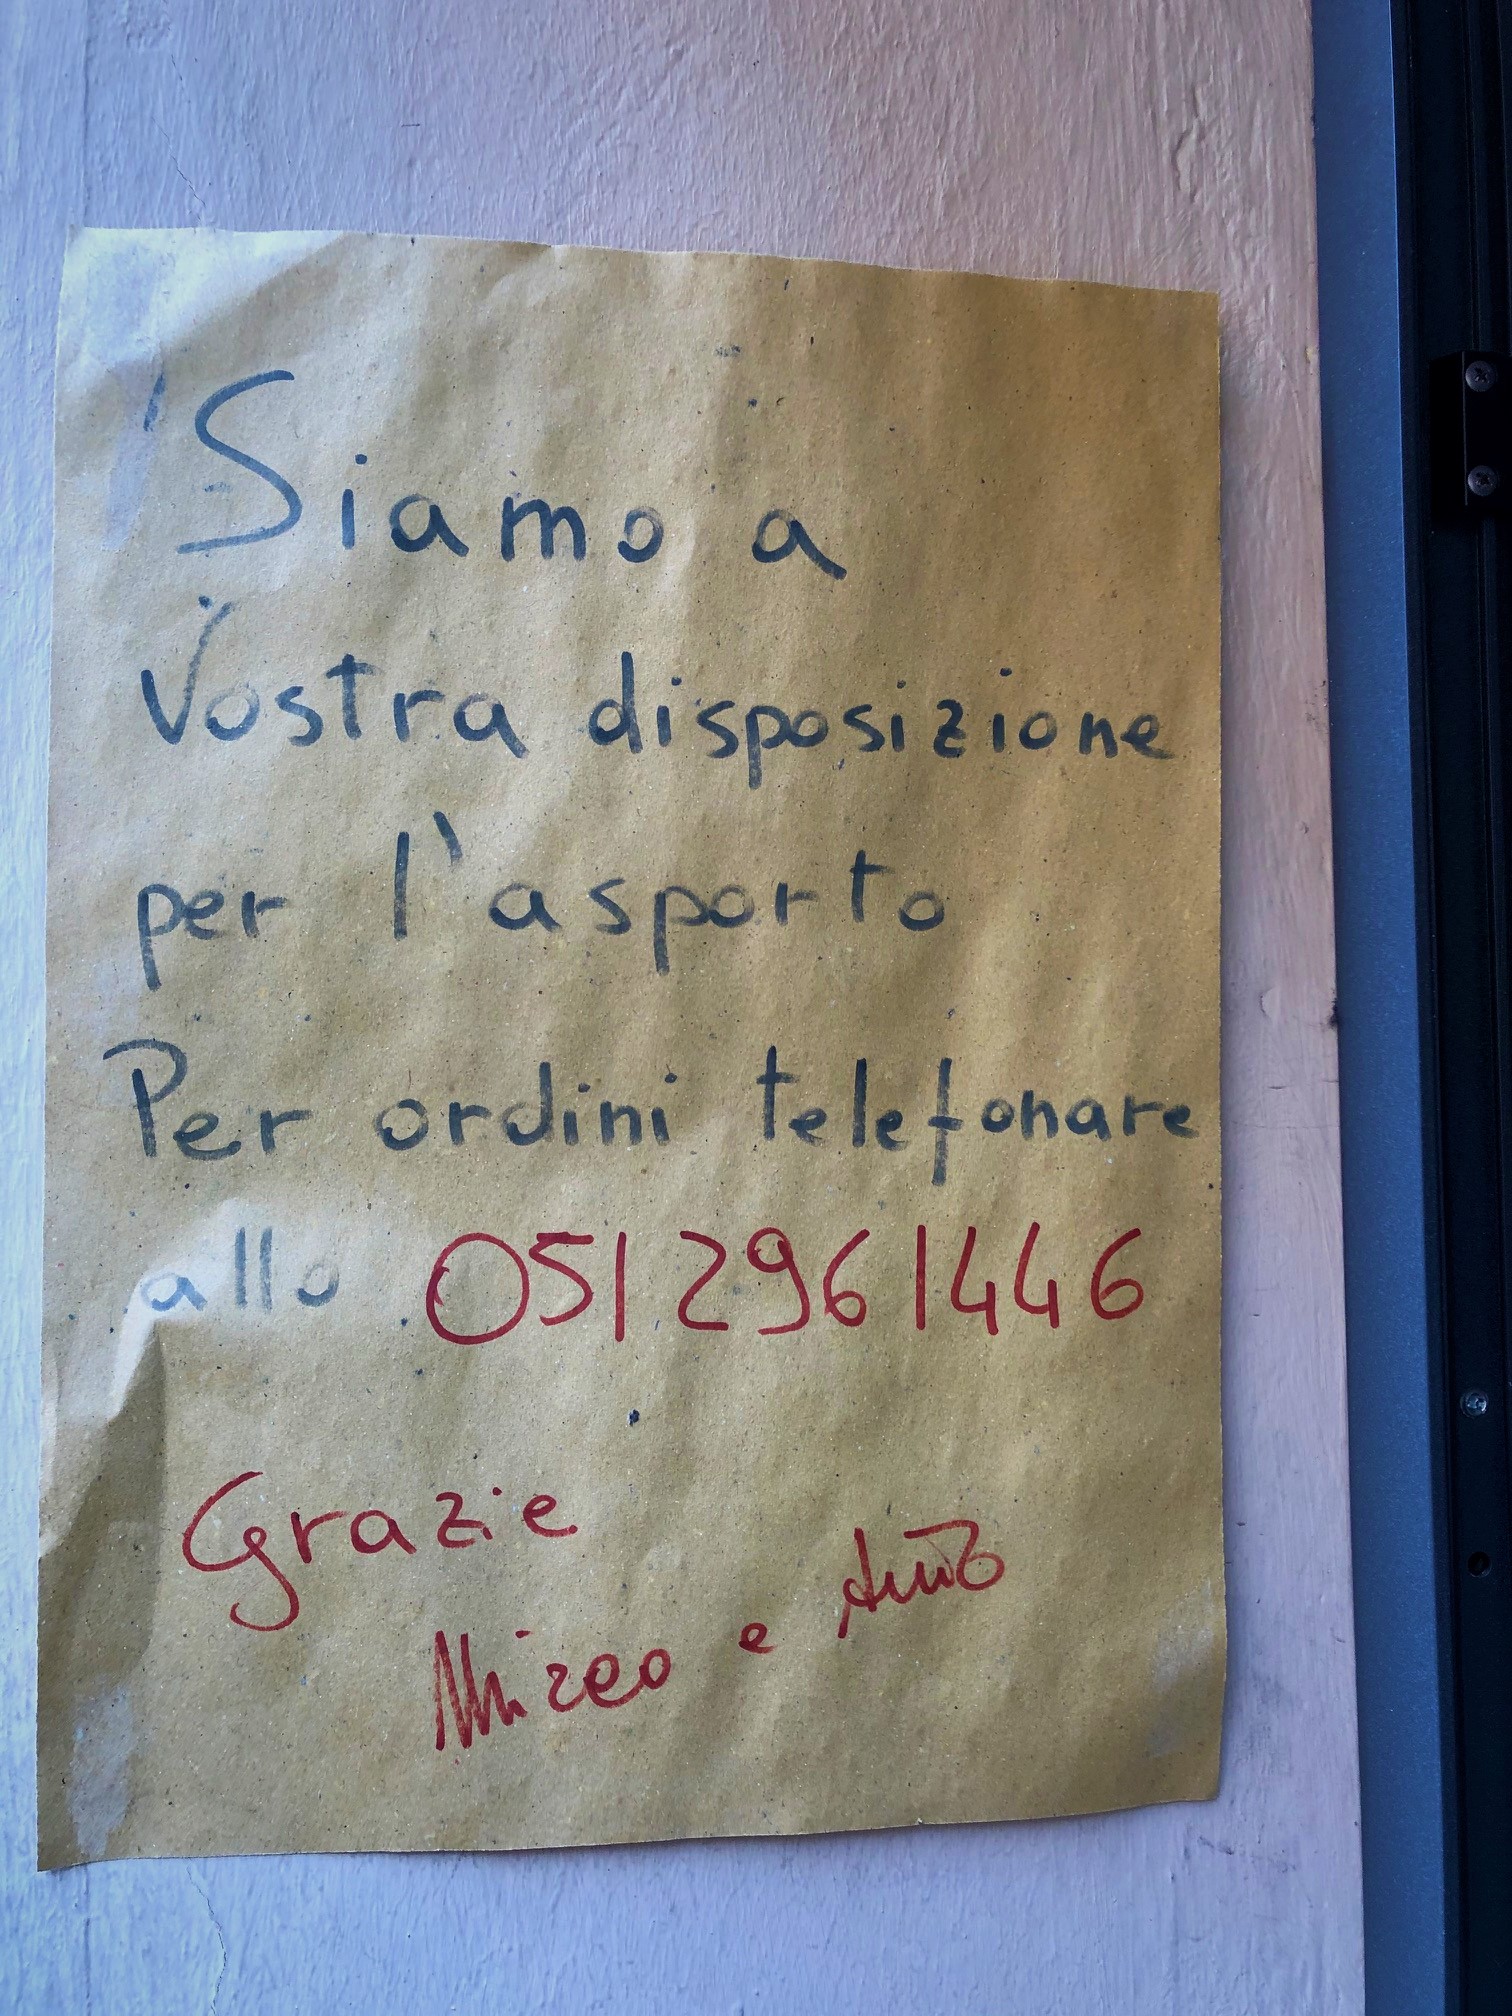 Siamo a
Vostra disposizione
per l'asporto
Per ordini telefonare
allo 051 2961446
Grazie
Mirco e